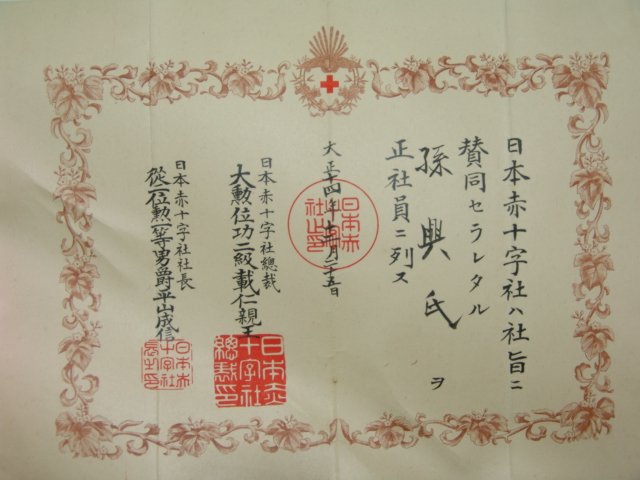 日本赤十字社ハ社旨ニ
賛同セラレタル
孫興氏ヲ
正社員ニ列ス
大正十四年十二月二十五日
日本赤十字社總裁
大勲位功二級載仁親王
日本赤十字社社長
從二位勲一等男爵平山成信
日本赤十字社之印
日本赤十字社總裁印
日本赤十字社社長之印